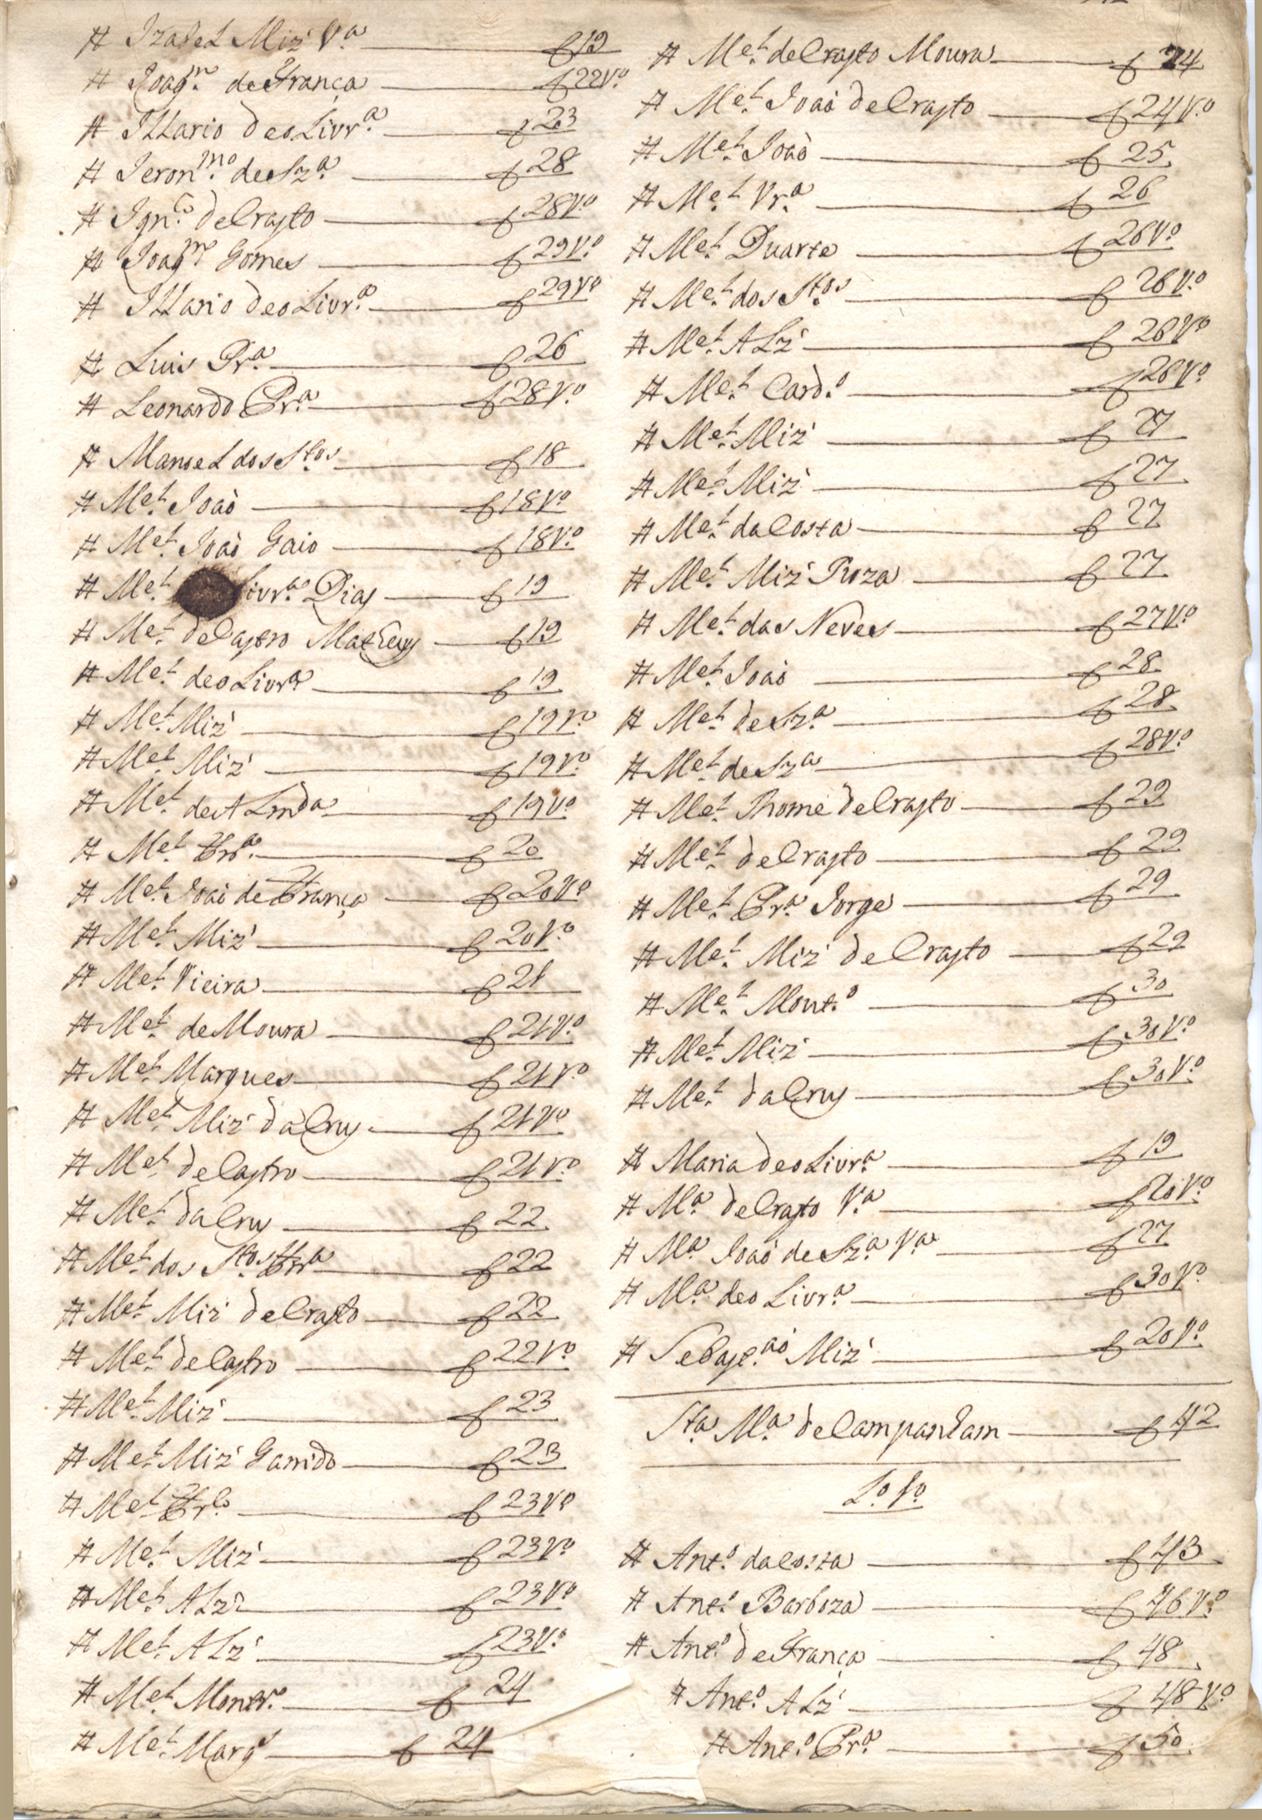 # Izabel Miz' Va f 19
# Joaqm. de França f 22 Vo
# Illario de oLivra. f 23
# Jeronmo. de Sza. f 28
# Ignco. de Crasto f 28 Vo
# Joaqm Gomes f 29 Vo
# Illario de oLivra. f 29 Vo
# Luis Pra. f 26
# Leonardo Pra f 28 Vo
# Manoel dos Stos f 18
# Mel. João f 18 Vo
# Mel. João Gaio f 18 Vo
# Mel. Livra. Dias f 19
# Mel. de Castro Matheus f 19
# Mel. de oLivra f 19
# Mel. Miz' f 19 Vo
# Mel. Miz' f 19 Vo
# Mel. de ALmda f 19 Vo
# Mel. f 20
# Mel. João de França f 20 Vo
# Mel. Miz' f 20 Vo
# Mel. Vieira f 21
# Mel. de Moura f 21 Vo
# Mel. Marques f 21 Vo
# Mel. Miz' da Crus f 21 Vo
# Mel. de Castro f 21 Vo
# Mel. da Cru f 22
# Mel. dos Stos f 22
# Mel. Miz' de Crasto f 22
# Mel. de Castro f 22 Vo
# Mel. Miz' f 23
# Mel. Miz' Garrido f 23
# Mel. f 23 Vo
# Mel. Miz' f 23 Vo
# Mel. ALz' f 23 Vo
# Mel. ALz' f 23 Vo
# Mel. Montro. f 24
# Mel. Marqs f 24
# Mel. de Crasto Moura f 24
# Mel. João de Crasto f 24 Vo
# Mel. João f 25
# Mel. Vra. f 26
# Mel. Duarte f 26 Vo
# Mel. dos Stos f 26 Vo
# Mel. ALz' f 26 Vo
# Mel. Cardo. f 26 Vo
# Mel. Miz' f 27
# Mel. Miz' f 27
# Mel. da Costa f 27
# Mel. Miz' Roza f 27
# Mel. das Neves f 27 Vo
# Mel. João f 28
# Mel. de Sza f 28
# Mel. de Sza f 28 Vo
# Mel. Thome de Crasto f 29
# Mel. de Crasto f 29
# Mel. Pra. Jorge f 29
# Mel. Miz' de Crasto f 29
# Mel. Monto. f 30
# Mel. Miz' f 30 Vo
# Mel. da Crus f 30 Vo
# Maria de oLivra. f 19
# Ma de Crasto Va f 20 Vo
# Ma João de Sza Va f 27
# Ma de oLivra. f 30 Vo
# Sebasam Miz' f 20 Vo
Sta Ma de Campanham f 42
Lo. 1o
# Anto. da Costa f 43
# Anto. Barboza f 46 Vo
# Anto. de França f 48
# Anto. ALz' f 48 Vo
# Anto. Pra. f 50